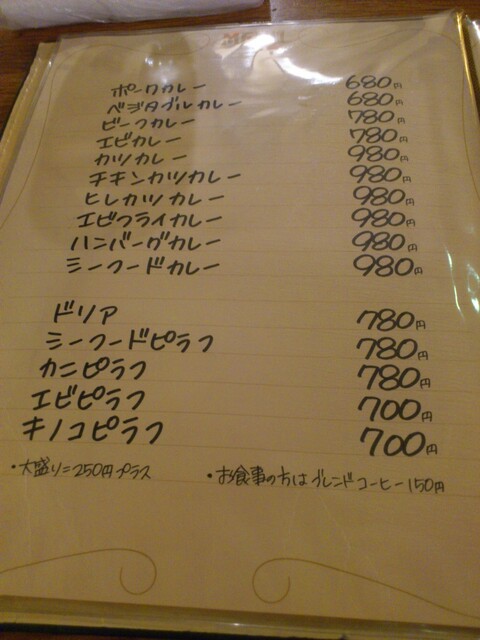 MENU
ポークカレー 680円
ベジタブルカレー 680円
ビーフカレー 780円
エビカレー 780円
カツカレー 980円
チキンカツカレー 980円
ヒレカツカレー 980円
エビフライカレー 980円
ハンバーグカレー 980円
シーフードカレー 980円
ドリア 780円
シーフードピラフ 780円
カニピラフ 780円
エビピラフ 700円
キノコピラフ 700円
・大盛り=250円プラス ・お食事の方はブレンドコーヒー150円